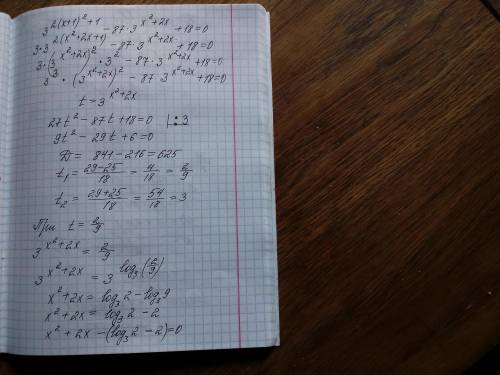 3^{2(x+1)^2+1} - 87·3^{x^2+2x} + 18 = 0
3·3^{2(x^2+2x+1)} - 87·3^{x^2+2x} + 18 = 0
3·(3^{x^2+2x})^2 · 3^2 - 87·3^{x^2+2x} + 18 = 0
3^3 · (3^{x^2+2x})^2 - 87·3^{x^2+2x} + 18 = 0
t = 3^{x^2+2x}
27t^2 - 87t + 18 = 0 |:3
9t^2 - 29t + 6 = 0
D = 841 - 216 = 625
t_1 = \frac{29-25}{18} = \frac{4}{18} = \frac{2}{9}
t_2 = \frac{29+25}{18} = \frac{54}{18} = 3
При t = \frac{2}{9}
3^{x^2+2x} = \frac{2}{9}
3^{x^2+2x} = 3^{log_3(\frac{2}{9})}
x^2+2x = log_3 2 - log_3 9
x^2+2x = log_3 2 - 2
x^2 + 2x - (log_3 2 - 2) = 0